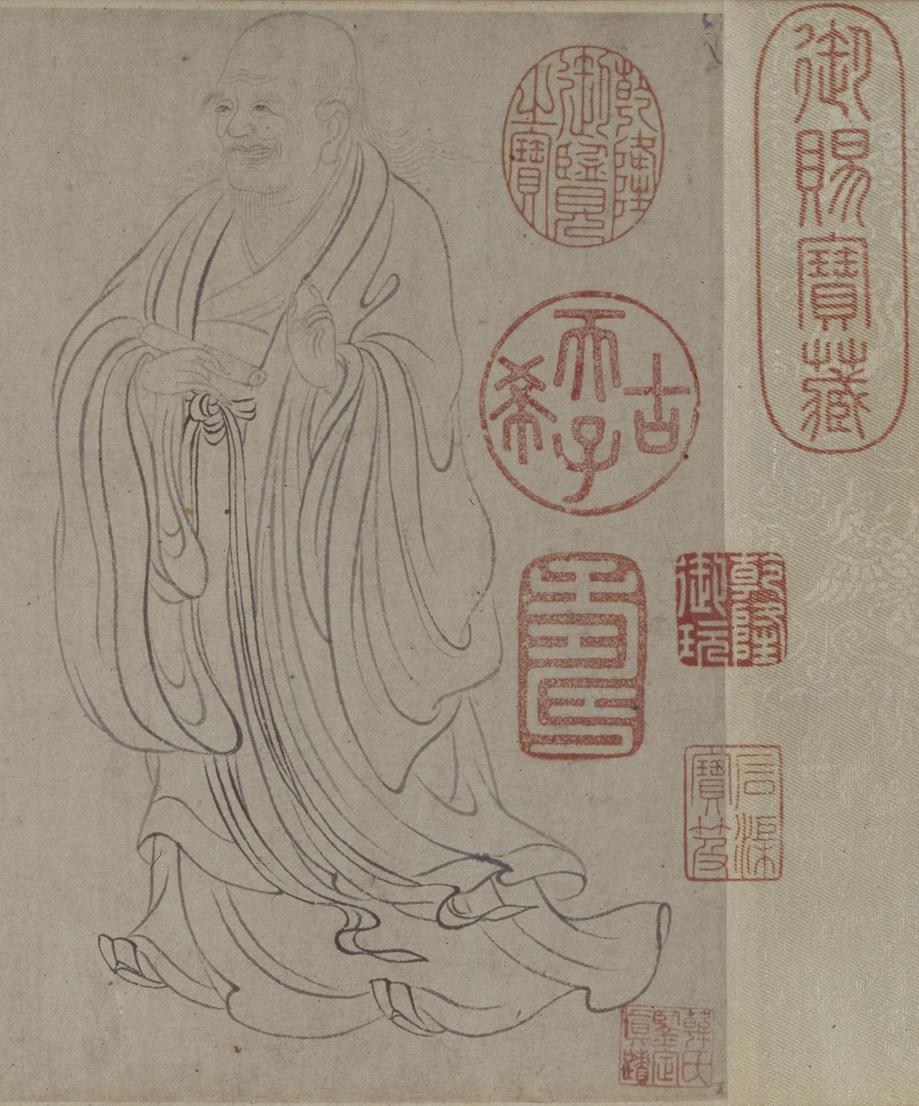 御賜寶藏
乾隆御覽之寶
古希天子
壽
乾隆御玩
石渠寶笈
韓氏鑒定真蹟